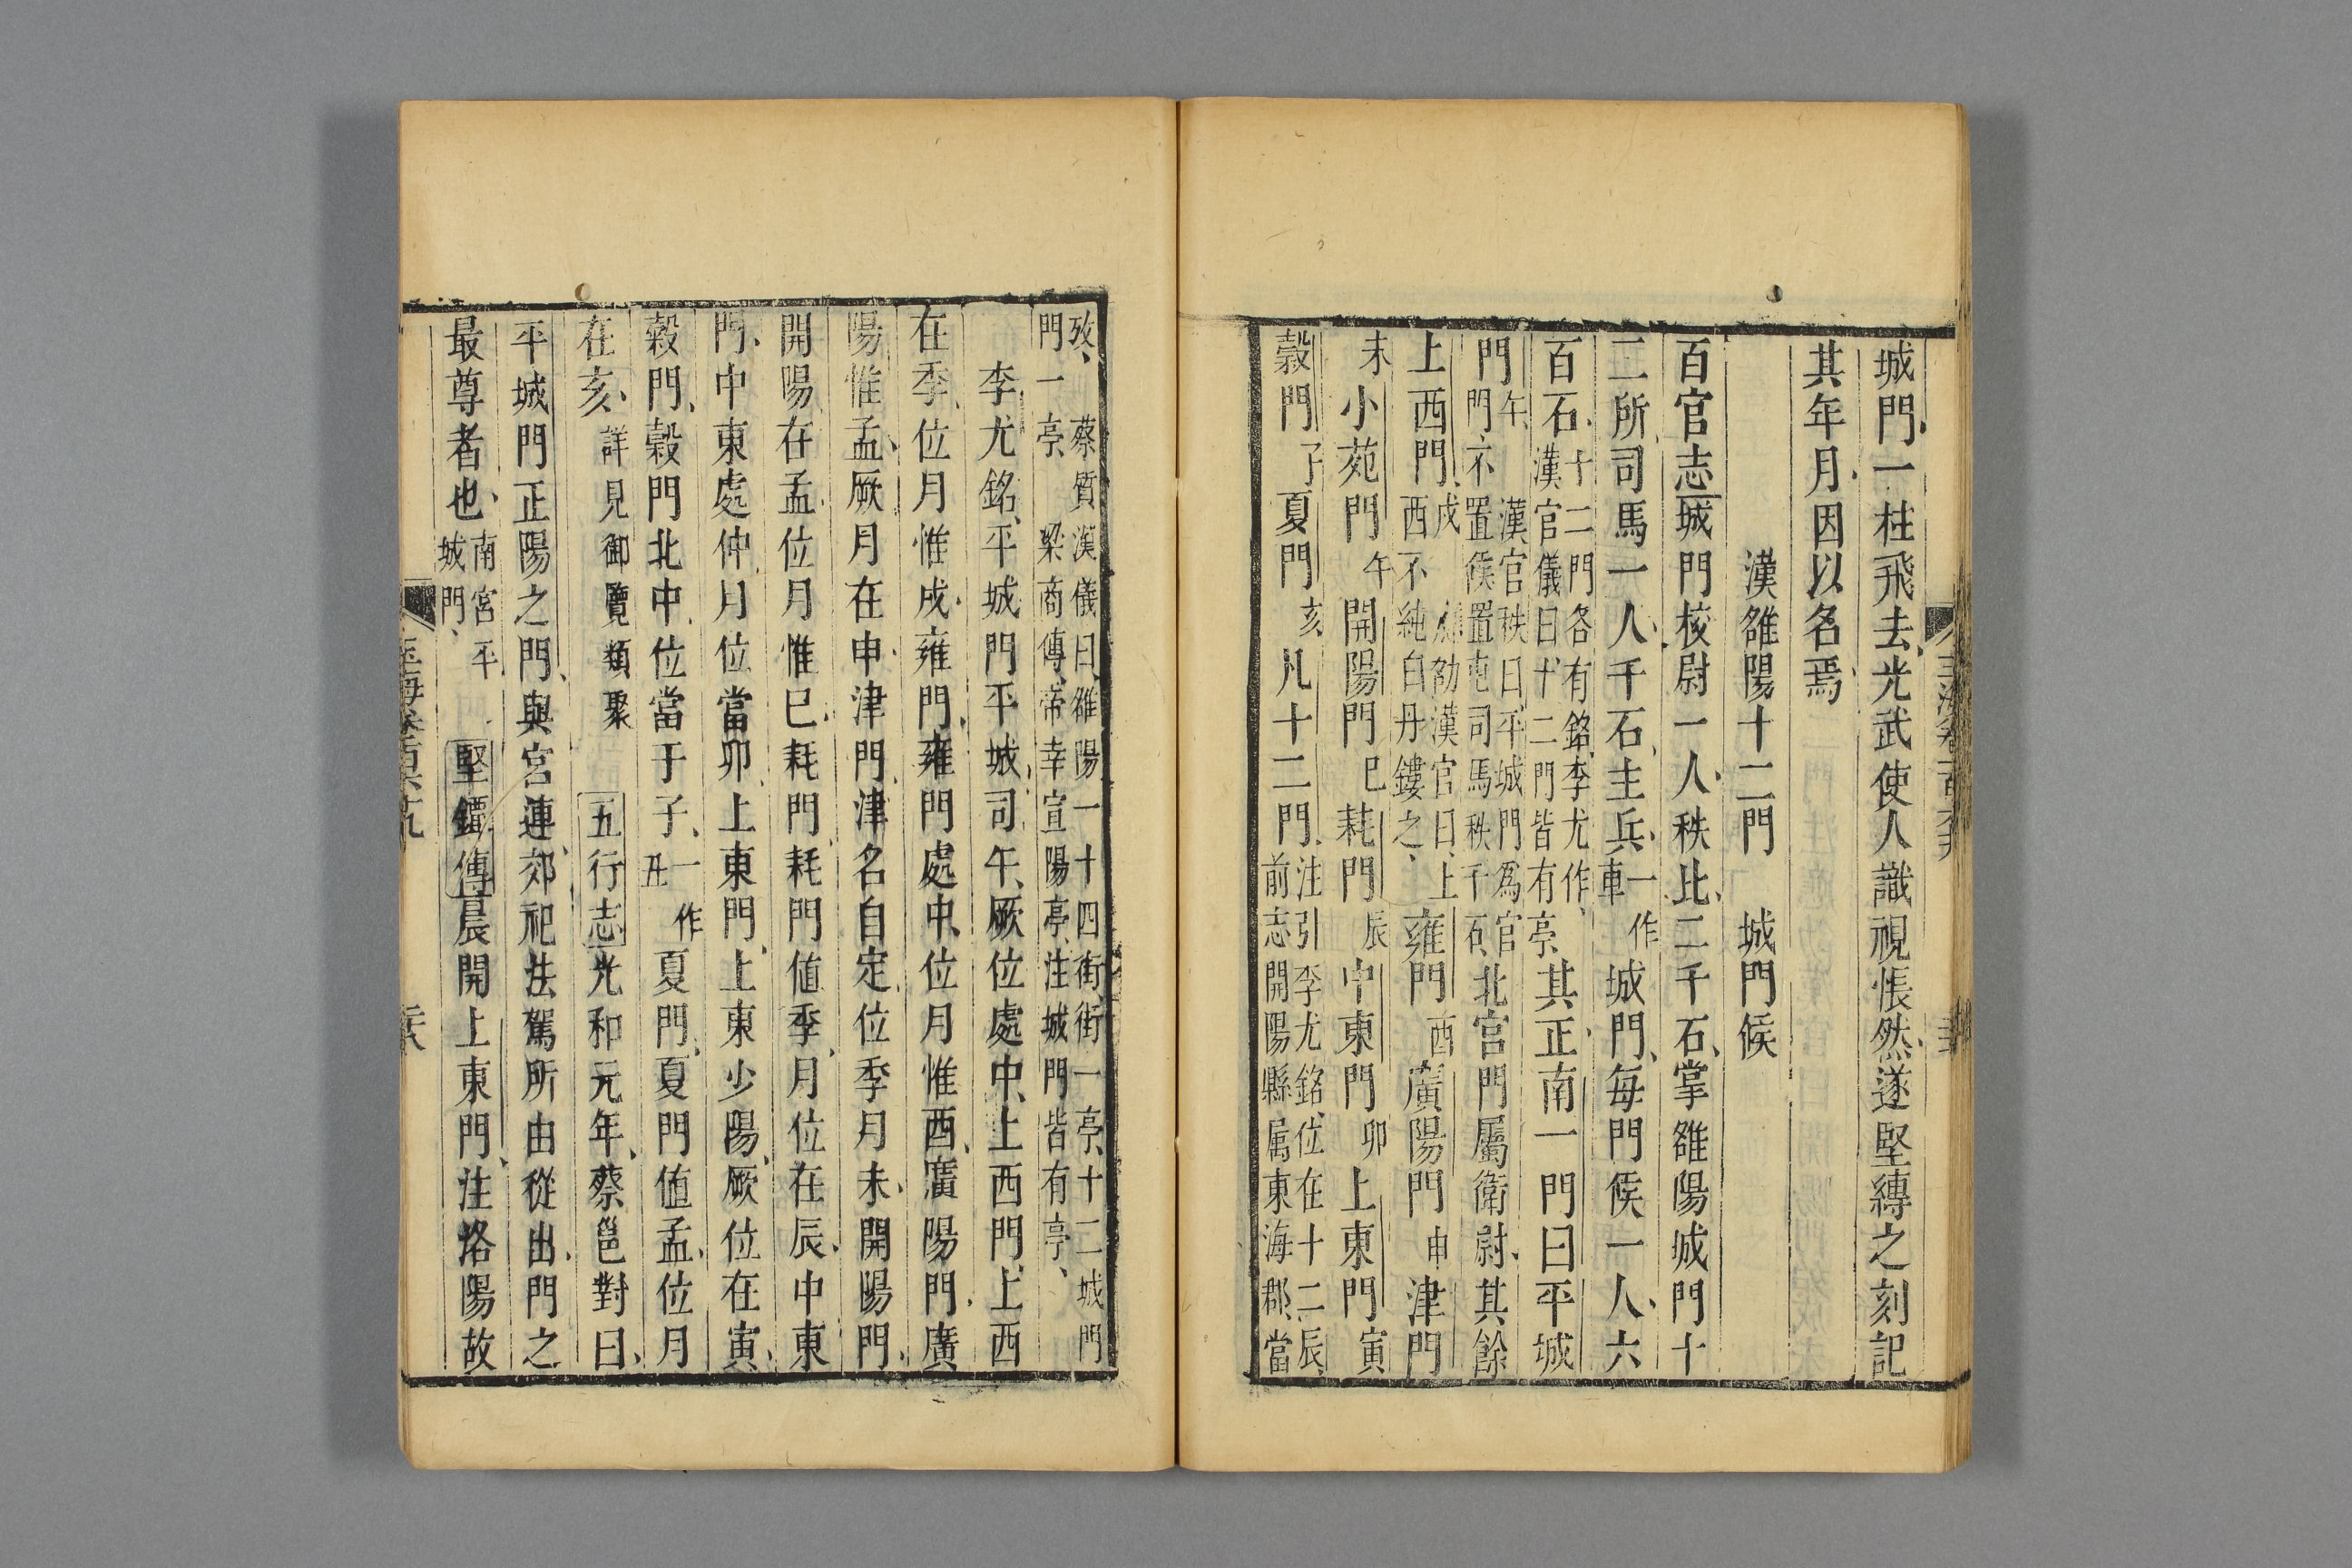 城門一柱飛去光武使人識視悵然遂堅縳之刻記
其年月因以名焉
漢雒陽十二門　城門候
百官志城門校尉一人秩比二千石掌雒陽城門十
二所司馬一人千石主兵一作車城門每門候一人六
百石十二門各有銘李尤作漢官儀曰十二門皆有亭其正南一門曰平城
門午漢官秩曰平城門爲官門不置候置屯司馬秩千石北宮門屬衛尉其餘
上西門戌應劭漢官曰上西不純白丹鏤之雍門酉廣陽門申津門
未小苑門午開陽門巳耗門辰中東門卯上東門寅
榖門子夏門亥凡十二門注引李尤銘位在十二辰前志開陽縣属東海郡當
攷蔡質漢儀曰雒陽一十四街街一亭十二城門門一亭梁商傳帝幸宣陽亭注城門皆有亭
李尤銘平城門平城司午厥位處中上西門上西
在季位月惟戌雍門雍門處中位月惟酉廣陽門廣
陽惟孟厥月在申津門津名自定位季月未開陽門
開陽在孟位月惟巳耗門耗門值季月位在辰中東
門中東處仲月位當卯上東門上東少陽厥位在寅
榖門榖門北中位當于子一作丑夏門夏門值孟位月
在亥詳見御覽類聚五行志光和元年蔡邕對曰
平城門正陽之門與宮連郊祀法駕所由從出門之
最尊者也南宮平城門堅鐔傳晨開上東門注洛陽故